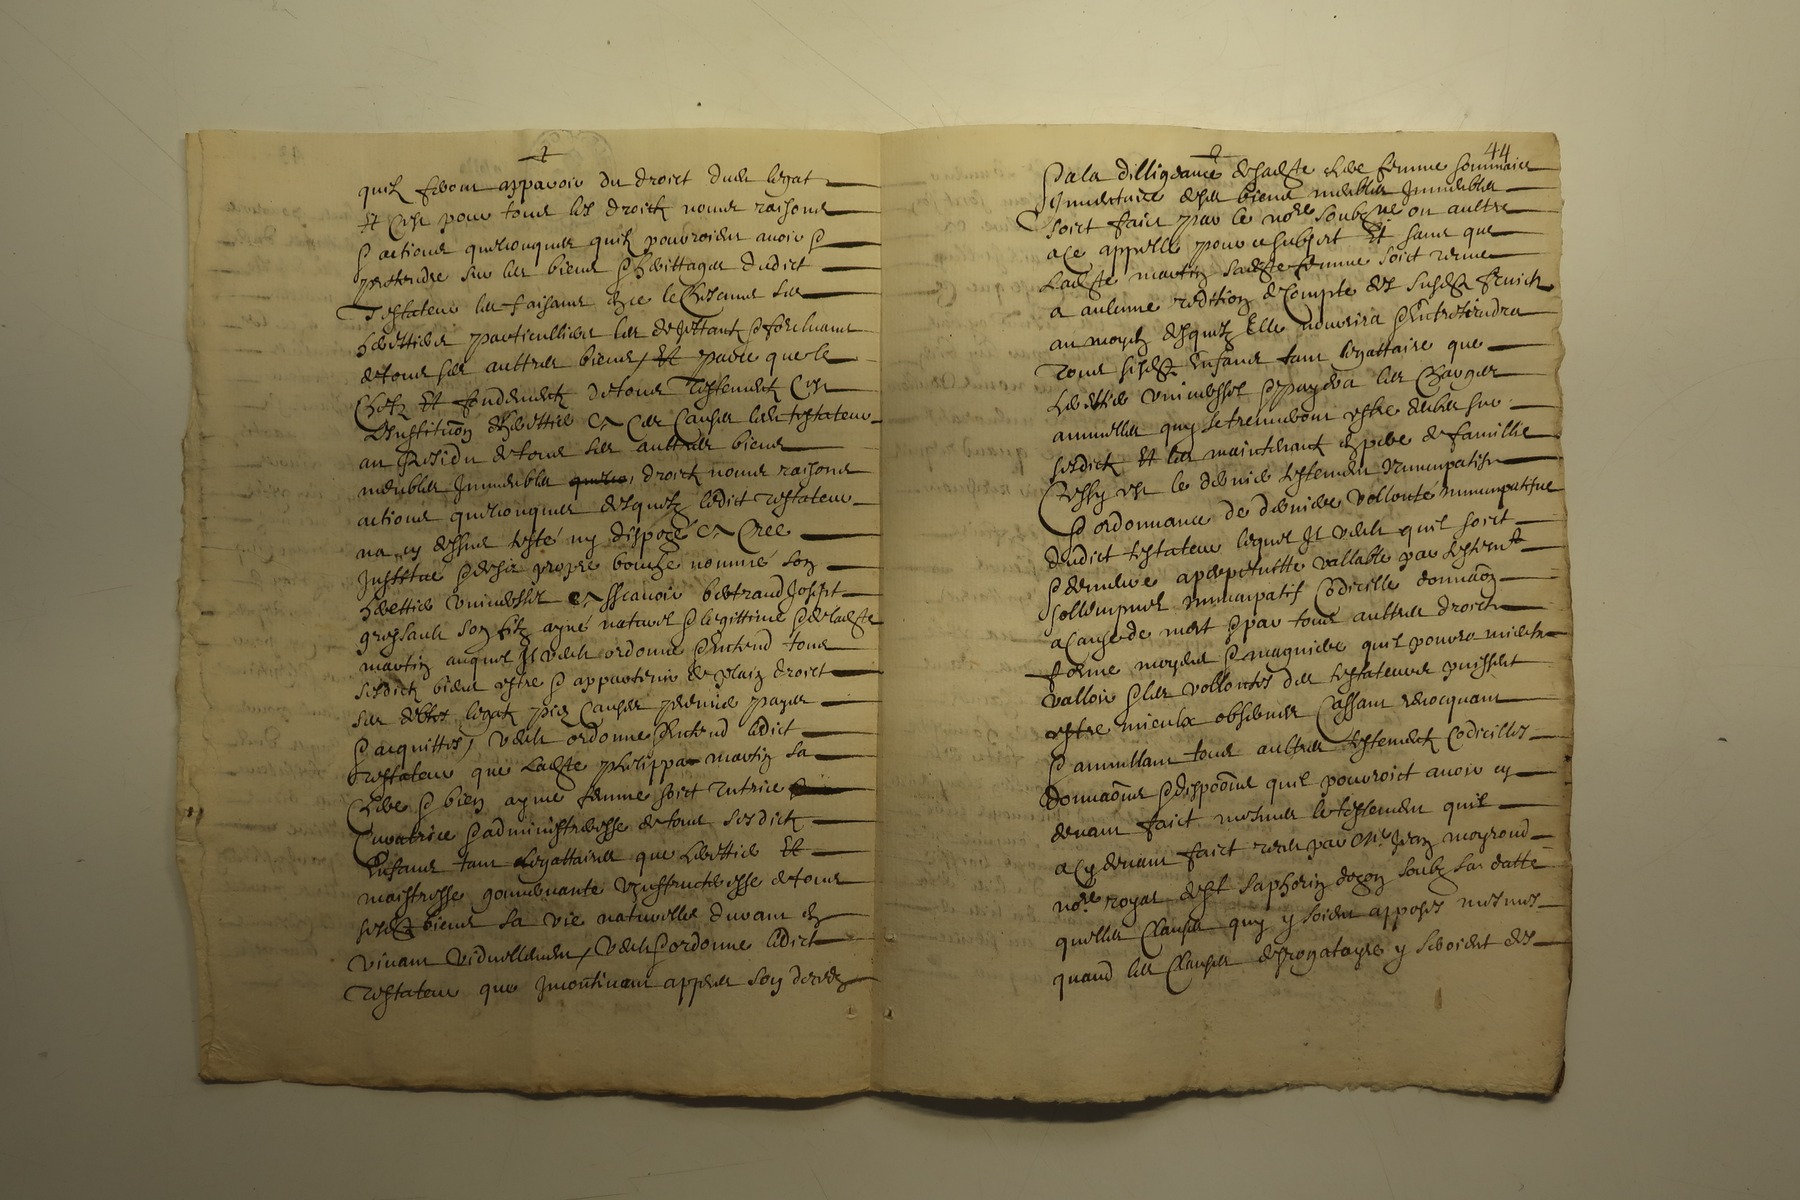 quilz feront apparoir du droict dud legat
Et C'est pour tous les droictz noms raisons
& actions quelconques quilz pourroient avoir &
pretendre sur les biens & heirittages dudict
Testateur les faisans
herittiers particulliers les dejettant & forcluant
de tous ses auttres biens, Et parce que le
Chefz Et fondement de tous Testementz C'est
L'Instituon d'herittier A Ces Causes led testateur
au Residu de tous ses auttres biens
meubles Immeubles droictz noms raisons
actions quelconques desquelz ledict testateur
na cy dessus testé ny disposé A Creé
Institué & de sa propre bouche nommé son
herittier universel A sscavoir bertrand Josept
gressault son filz ayné naturel & legittime & de ladte
martin auquel Il veult ordonne & Entend tous
sesdictz biens estre & appartenir de plain droict
ses debtes legatz piez Causes premier payes
& acquittes, veult ordonne & Entend ledict
testateur que Ladte philippa martin sa
Chere & bien aymé femme soict tutrice
Curatrice & administreresse de tous sesdictz
Enfans tant legattaires que herittier Et
maistresse gouvernante usufructueresse de tous
sesd biens sa vie naturelle durant en
vivant viduellement, Veult & ordonne ledict
Testateur que Incontinent appres son decedz
44
& a la dilligeance de sadte chere femme sommaire
Inventaire de ses biens meubles Immeubles
soict faict par le nore soubzne ou aultre
a ce appellé pour ce subject Et sans que
Ladte martin sadte femme soict tenue
a aulcune reddition de Compte des susd fruictz
au moyen desquelz Elle nourrira & Entretiendra
tous sesd Enfans tant legattaires que
herittier universel & payera les Charges
annuelles quy se treuveront estre deubes sur
sesdictz Et les maintenant en pere de famillie
Cessy est le dernier testement Nuncupatif
& ordonnance de derniere vollonté nuncupatifve
dudict testateur lequel Il veult quil soict
& demeure a perpetuitté vallable par testemt
sollempnel nuncupatif Codicille donnaon
a Cause de mort & par tous aultres droictz
forme moyens & magniere quil pourra mieulx
valloir & les vollontés des testateurs puissent
estre mieulx observer Cassant revocquant
& annullant tous aultres testementz Codicilles
donnaons & dispoons quil pourroict avoir cy
devant faict mesmes le testement quil
a Cy devant faict receu par Me Jean moyroud
nore royal de st saphorin dozon soubz sa datte
quelles Clauses quy y soient apposes mesmes
quand les Clauses desrogatoyre y seroient des